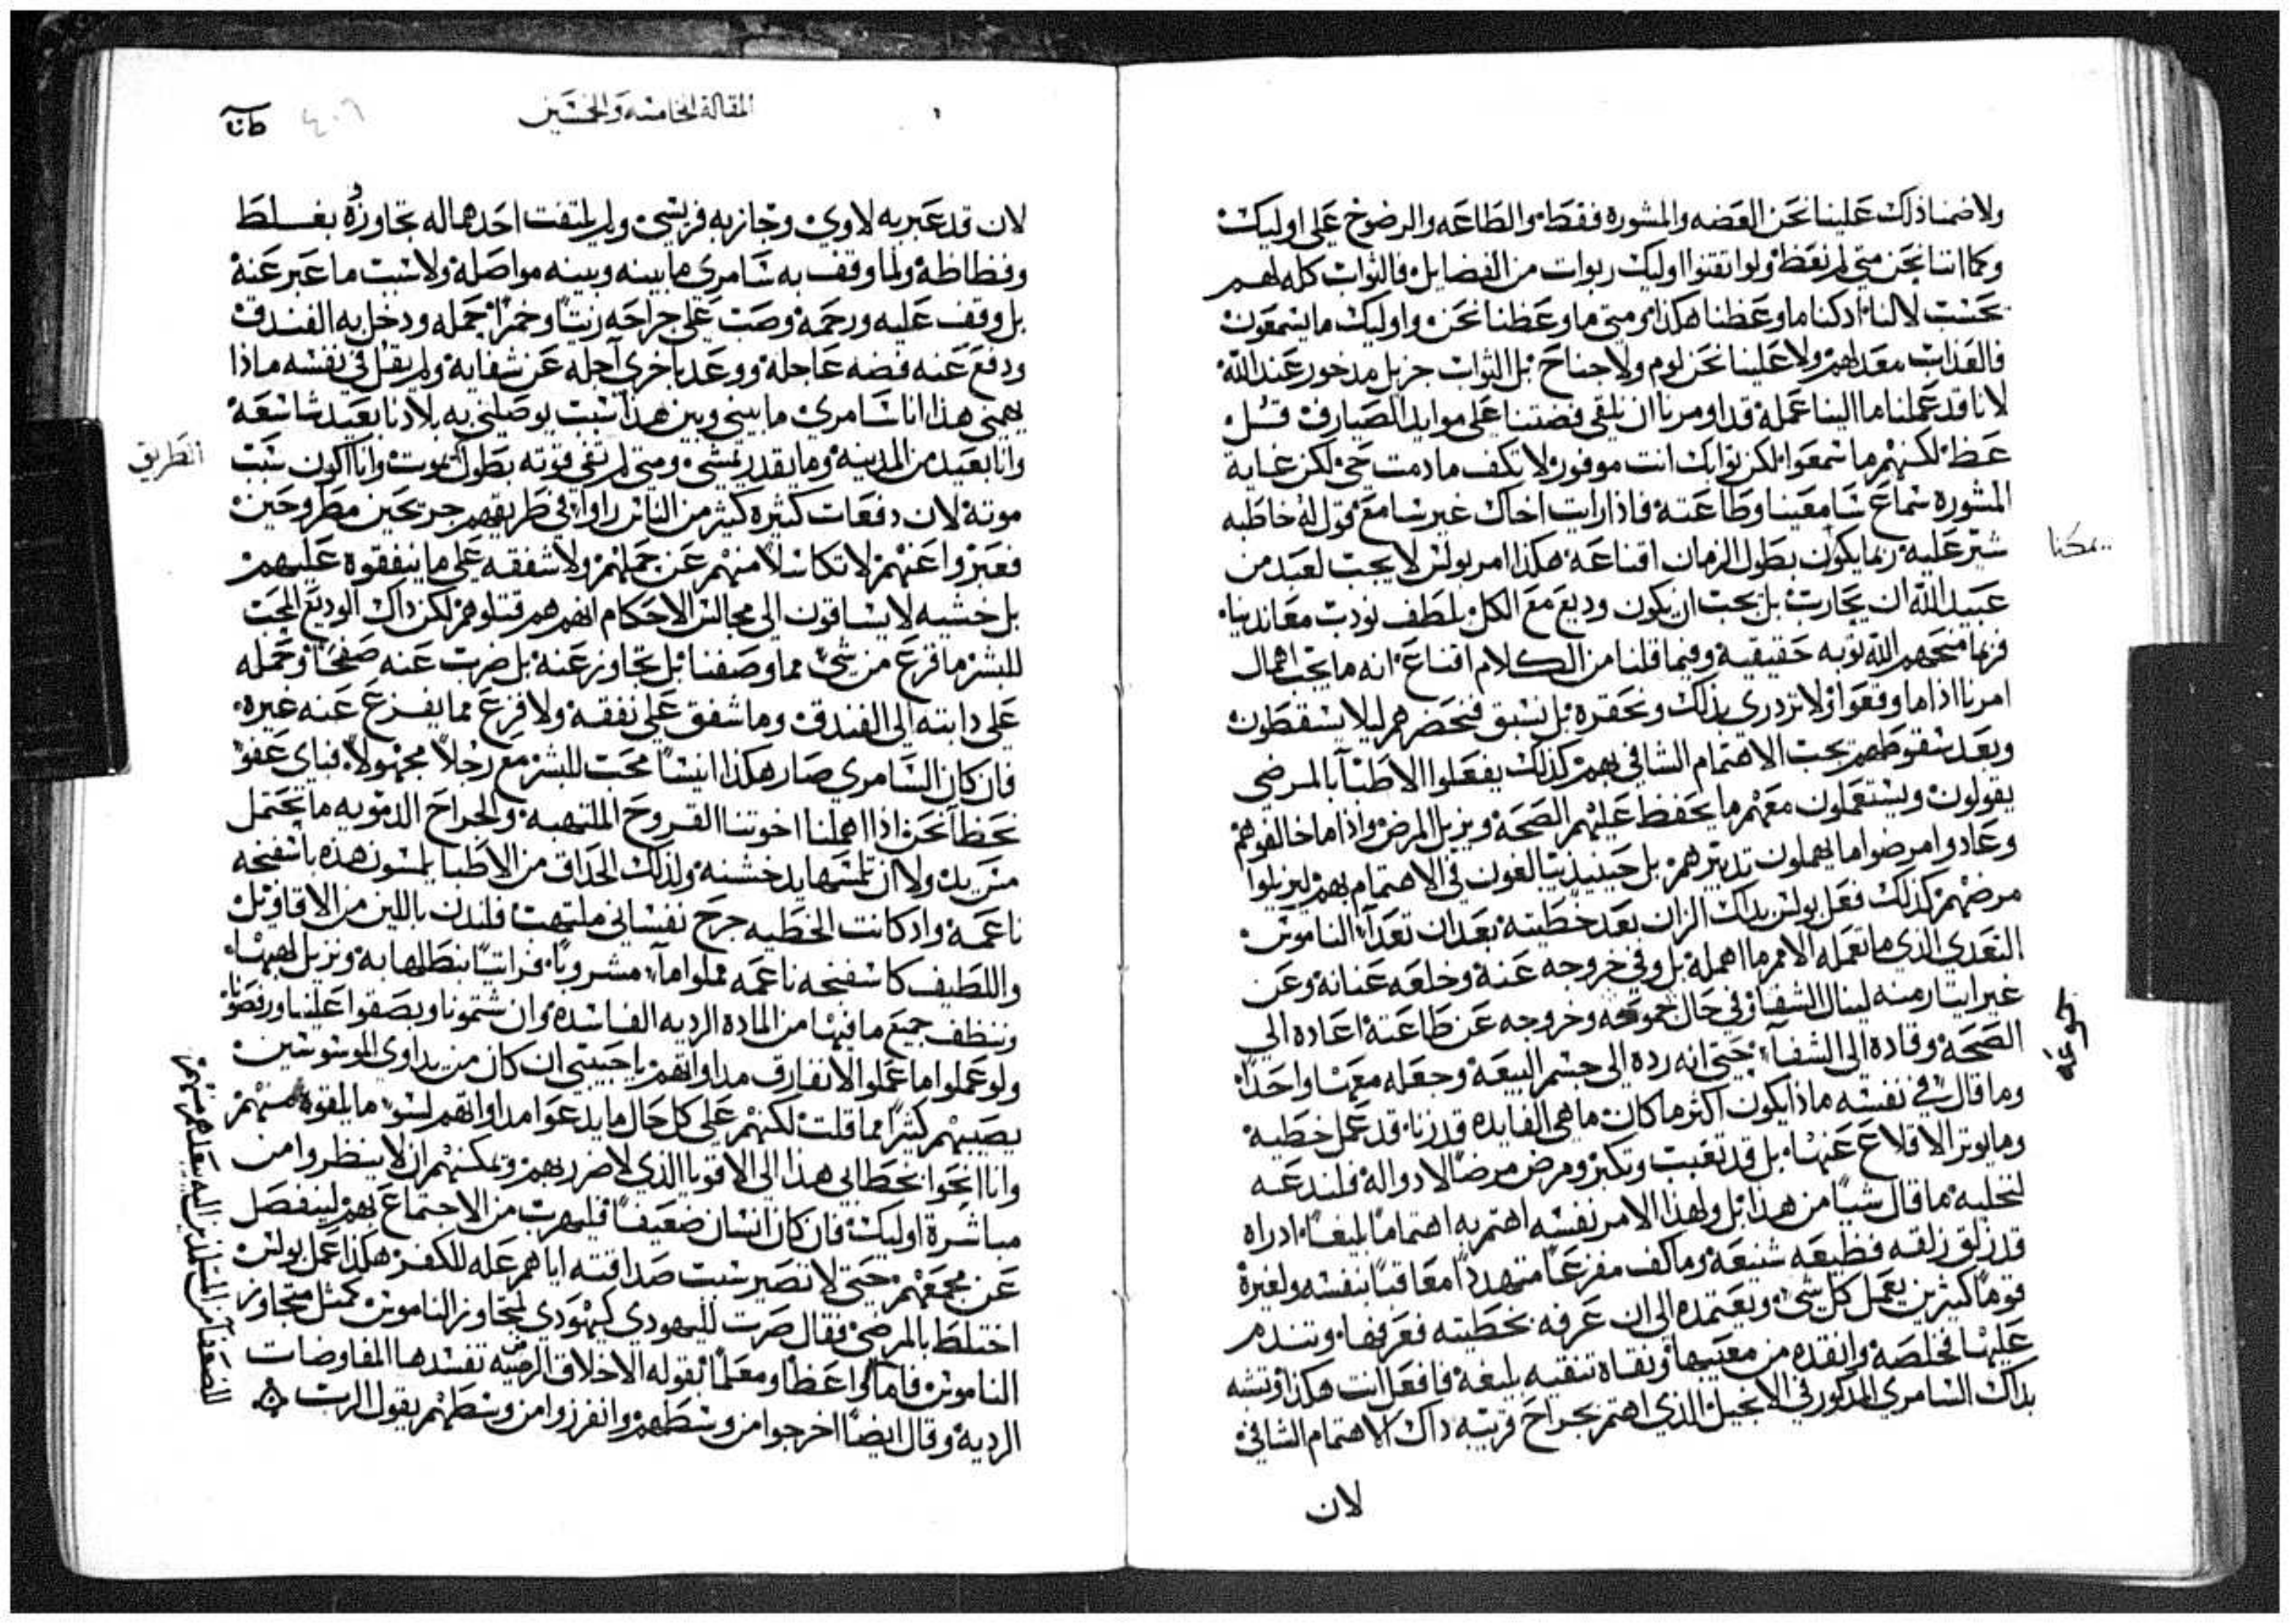 ولا ضمنا ذلك علينا نحن العضه والمشوره فقط والطاعه والرضوخ على اوليك
وكما اننا نحن متى لم نعظ ولو اتقنوا اوليك ربوات من الفضايل فالثواب كله لهم
بحسب لا لنا اذ كنا ما وعظنا هكذا ومتى ما وعظنا نحن واوليك ما يسمعون
فالعذاب معد لهم ولا علينا نحن لوم ولا جناح بل الثواب جزيل مدخور عند الله
لانا قد عملنا ما الينا عمله قد اومرنا ان نلقي فضتنا على موايد الصيارف قيل
عظ لكنهم ما سمعوا لكن ثوابك انت موفور لا تكف ما دمت حي لكن غاية
المشوره سماع سامعينا وطاعته فاذا رايت اخاك غير سامع قول له خاطبه
شير عليه ربما يكون بطول الزمان اقناعه هكذا امر بولس لا يجب لعبد من
عبيد الله ان يحارب بل يجب ان يكون وديع مع الكل بلطف نودب معاندينا
فربما منحهم الله توبه حقيقية وفيما قلنا من الكلام اقناع انه ما يجب اهمال
امرنا اذا ما وقعوا ولا نزدري بذلك ونحقره بل نسبق فنحضرهم ليلا يسقطون
وبعد سقوطهم يجب الاهتمام الشافي بهم كذلك يفعلوا الاطبآ بالمرضى
يقولون ويستعملون معهم ما يحفظ عليهم الصحة ويزيل المرض واذا ما خالفوهم
وعادوا مرضوا ما يهملون تدبيرهم بل حينيذ يبالغون في الاهتمام بهم ليزيلوا
مرضهم كذلك فعل بولس بذاك الزان بعد خطيته بعد ان تعدآ الناموس
التعدي الذي ما تعمله الامم ما اهمله بل وفي خروجه عنه وخلعه عنانه وعن
غير ايثار منه لينال الشفا وفي حال جموحه وخروجه عن طاعته اعاده الى
الصحة وقاده الى الشفآ حتى انه رده الى جسم البيعة وجعله معنا واحدًا
وما قال في نفسه ماذا يكون اكثر ما كان ما هي الفايده قد زنا قد عمل خطية
وما يوثر الاقلاع عنها بل قد تعبت وتكبر ومرض مرضًا لا دوا له فلندعه
لنحليه ما قال شيًا من هذا بل ولهذا الامر نفسه اهتم به اهتمامًا بليغًا اذ راه
قد زلق زلقه فظيعه شنيعه وما كف مفزعًا متهددًا معاقبًا بنفسه ولغيره
قومًا كثيرين يعمل كل شي ويعتمده الى ان عرفه بخطيته فعرفها وتندم
عليها فخلصه وانقده من معيبها ونقاه تنقيه بليغه فافعل انت هكذا وتشبه
بذاك السامري المذكور في الانجيل الذي اهتم بجراح قريبه ذاك الاهتمام الشافي
لان
يمكنا
جموحه
المقالة الخامسه والخمسين
٤٠٦
لان قد عبر به لاوي وجاز به فريسي ولم يلتفت احدهما له تجاوزوه بغلط
وفظاظة ولما وقف به سامري ما بينه وبينه مواصلة ولا سبب ما عبر عنه
بل وقف عليه ورحمه وصب على جراحه زيتًا وخمرًا حمله ودخل به الفندق
ودفع عنه فضه عاجله ووعد باخرى آجله عن شفايه ولم يقل في نفسه ماذا
يهمني هذا انا سامري ما بيني وبين هذا سبب يوصلني به بلادنا بعيد شاسعه
وانا بعيد من المدينه وما يقدر يمشي ومتى لم تفي قوته بطول يموت وانا اكون سبب
الطريق
موته لان دفعات كثيره كثير من الناس راوا في طريقهم جريحين مطروحين
فعبروا عنهم لا تكاسلًا منهم عن حملهم ولا شفقه على ما ينفقوه عليهم
بل خشيه لا يساقون الى مجالس الاحكام انهم هم قتلوهم لكن ذاك الوديع المحب
للبشر ما فزع من شي مما وصفنا بل تجاوز عنه بل ضرب عنه صفحًا وحمله
على دابته الى الفندق وما شفق على نفقه ولا فزع مما يفزع عنه غيره
فان كان السامري صار هكذا انيسًا محب للبشر مع رجلًا مجهولًا فباي عفو
نحظا نحن اذا اهملنا اخوتنا القروح الملتهبه والجراح الدمويه ما تحتمل
من يد ولا ان تلمسها يد خشنه ولذلك الحذاق من الاطبا يلمسون هذه باسفنجه
ناعمه واذ كانت الخطيه جرح نفساني ملتهب فلندن باللين من الاقاويل
واللطيف كاسفنجه ناعمه مملوا مآ مشروبًا فراتيًا نبطل لها به ونزيل لهيبها
وننظف جميع ما فيها من الماده الرديه الفاسده وان شتمونا وبصقوا علينا ورفصونا
ولو عملوا ما عملوا لا نفارق مداواتهم يا حبيبي ان كان من يداوي الموسوسين
يصيبهم كثيرًا مما قلت لكنهم على كل حال ما يدعوا مداواتهم لسو ما يلقوه منهم
وانا انحوا بخطابي هذا الى الاقويا الذي لا ضرر بهم وتمكنهم ان لا ينظروا من
مباشرة اوليك فان كان انسان ضعيفًا فليهرب من الاجتماع بهم لينفصل
عن مجمعهم حتى لا تصير سبب صداقته اياهم عله للكفر هكذا عمل بولس
اختلط بالمرضى فقال صرت لليهودي كيهودي لمتجاوز الناموس كمثل متجاوز
الناموس فاما واعظًا ومعلمًا بقوله الاخلاق الرضيه تفسدها المفاوضات
الرديه وقال ايضًا اخرجوا من وسطهم وانفرزوا من وسطهم يقول الرب